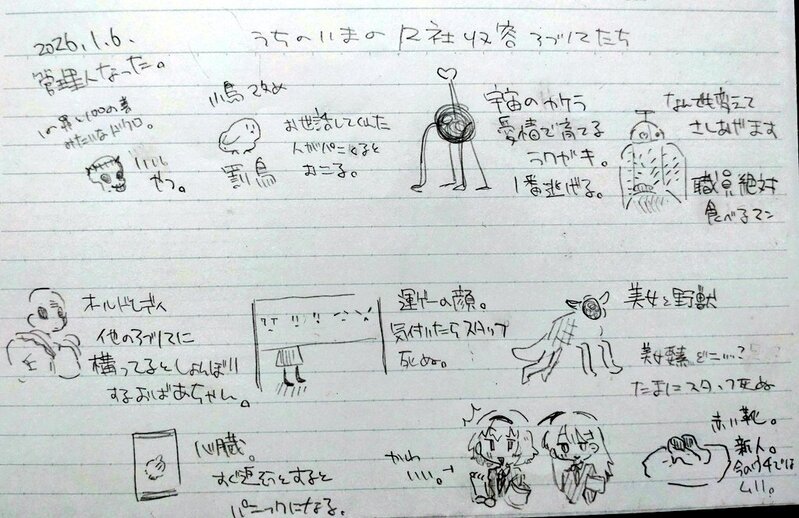 2026.1.6.
管理人なった。
うちのいまのロ社収容アブノマたち
1の罪と100の善
みたいなドクロ。
いい
やつ。
小鳥改め
罰鳥
お世話してくれた
人がパニくると
おこる。
宇宙のカケラ
愛情で育てる
ラクガキ。
1番逃げる。
なんでも変えて
さしあげます
職員絶対
食べるマン
オールドレディ
他のアブノマに
構ってるとしょんぼり
するおばあちゃん。
運ゲーの顔。
気付いたらスタッフ
死ぬ。
美女と野獣
美女要素どこいった?
たまにスタッフ死ぬ
心臓。
すぐ
パニックになる。
かわ
いい。→
赤い靴。
新人。
今のウチでは
ムリ。